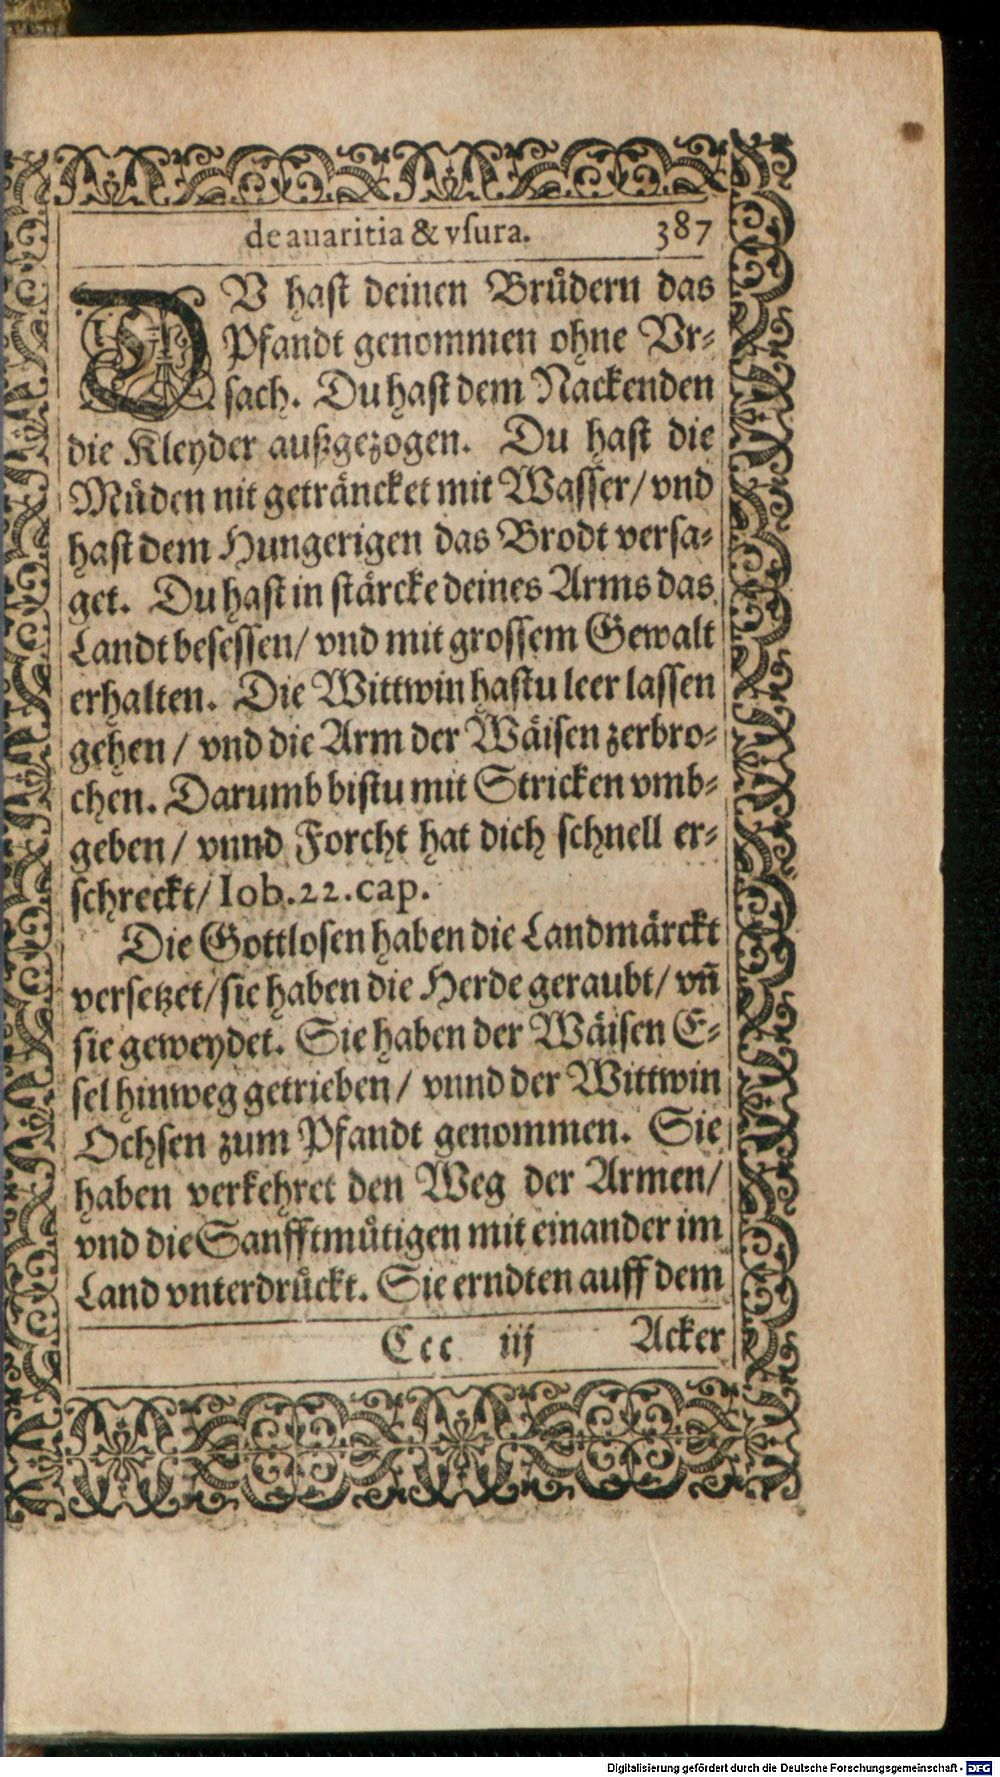 de auaritia & vſura. 387
DV haſt deinen Bruͤdern das
Pfandt genommen ohne Vr⸗
ſach. Du haſt dem Nackenden
die Kleyder außgezogen. Du haſt die
Muͤden nit getraͤncket mit Waſſer/ vnd
haſt dem Hungerigen das Brodt verſa⸗
get. Du haſt in ſtaͤrcke deines Arms das
Landt beſeſſen/ vnd mit groſſem Gewalt
erhalten. Die Wittwin haſtu leer laſſen
gehen/ vnd die Arm der Waͤiſen zerbro⸗
chen. Darumb biſtu mit Stricken vmb⸗
geben/ vnnd Forcht hat dich ſchnell er⸗
ſchreckt/ Iob. 22. cap.
Die Gottloſen haben die Landmaͤrckt
verſetzet/ ſie haben die Herde geraubt/ vn̄
ſie geweydet. Sie haben der Waͤiſen E⸗
ſel hinweg getrieben/ vnnd der Wittwin
Ochſen zum Pfandt genommen. Sie
haben verkehret den Weg der Armen/
vnd die Sanfftmuͤtigen mit einander im
Land vnterdruͤckt. Sie erndten auff dem
Ccc iij Acker
Digitalisierung gefördert durch die Deutsche Forschungsgemeinschaft - DFG